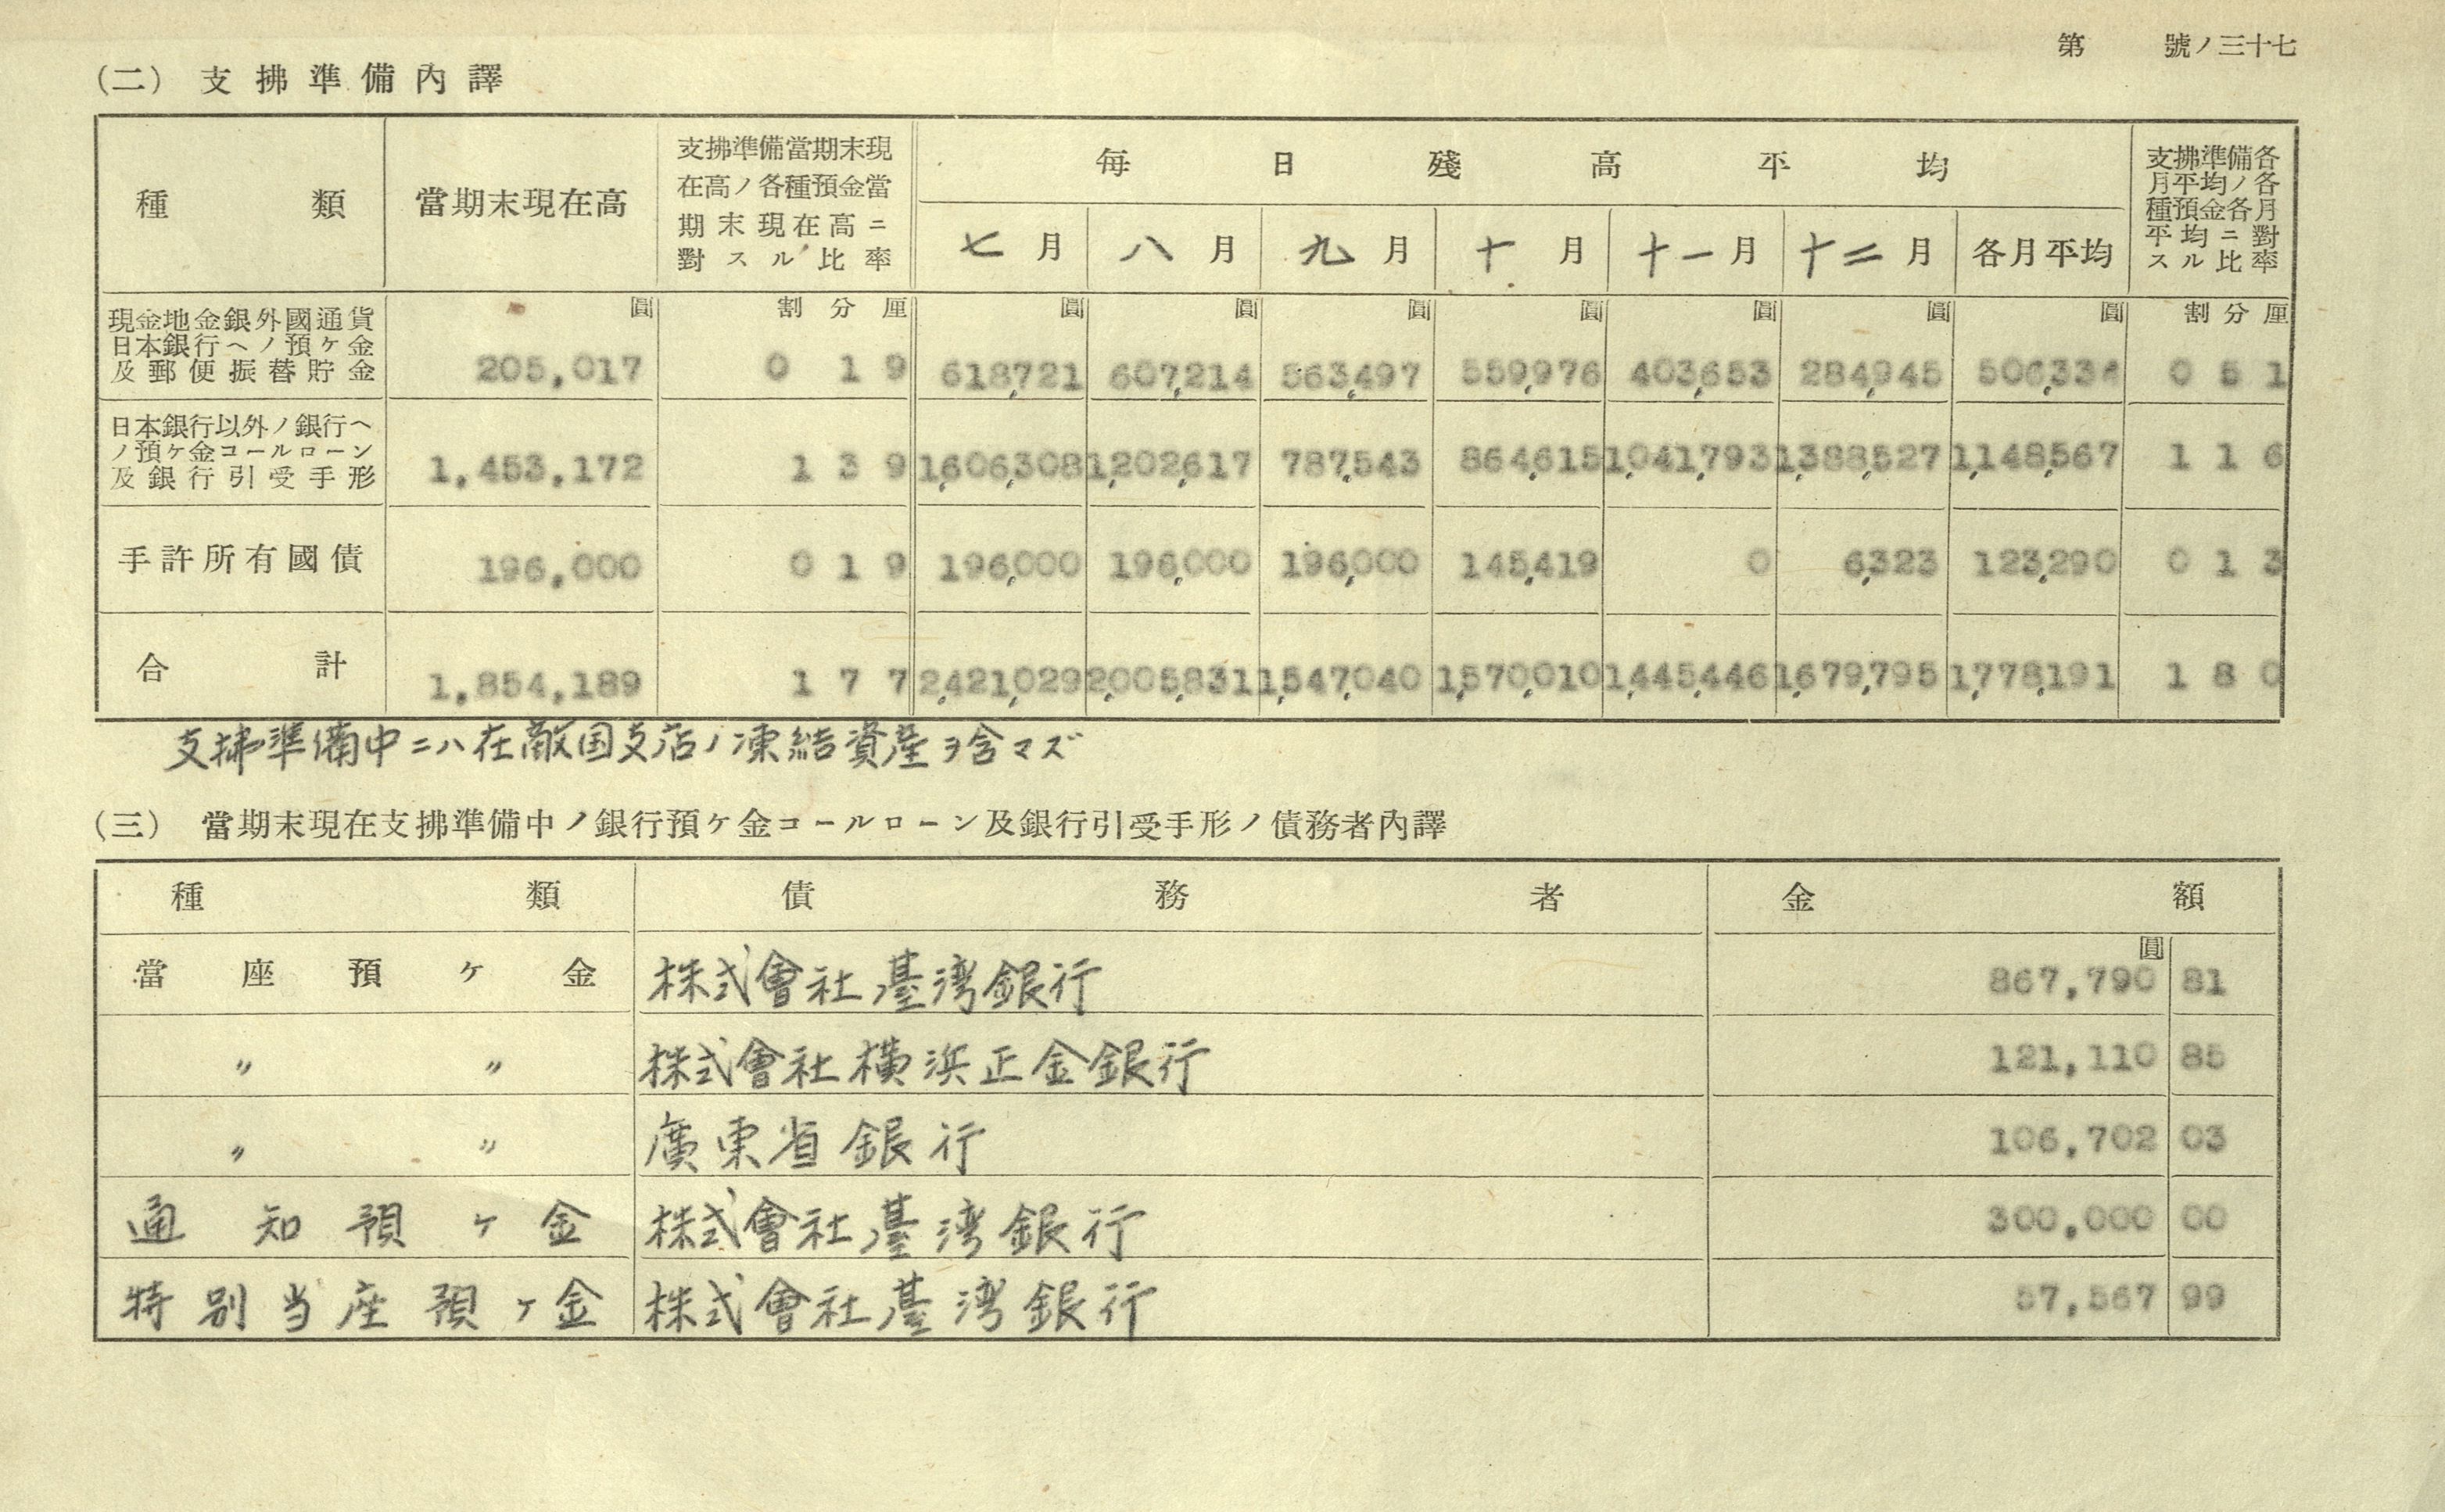 第 號ノ三十七
(二) 支拂準備內譯
種類 當期末現在高 支拂準備當期末現在高ノ各種預金當期末現在高ニ對スル比率 每日殘高平均 支拂準備各月平均ノ各種預金各月平均ニ對スル比率
七月 八月 九月 十月 十一月 十二月 各月平均
圓 割分厘 圓 圓 圓 圓 圓 圓 圓 割分厘
現金地金銀外國通貨
日本銀行ヘノ預ケ金
及郵便振替貯金 205,017 0 1 9 618,721 607,214 563,497 559,976 403,653 284,945 506,334 0 5 1
日本銀行以外ノ銀行ヘ
ノ預ケ金コールローン
及銀行引受手形 1,453,172 1 3 9 1,606,308 1,202,617 787,543 864,615 1,041,793 1,388,527 1,148,567 1 1 6
手許所有國債 196,000 0 1 9 196,000 196,000 196,000 145,419 0 6,323 123,290 0 1 3
合計 1,854,189 1 7 7 2,421,029 2,005,831 1,547,040 1,570,010 1,445,446 1,679,795 1,778,191 1 8 0
支拂準備中ニハ在敵国支店ノ凍結資産ヲ含マズ
(三) 當期末現在支拂準備中ノ銀行預ケ金コールローン及銀行引受手形ノ債務者內譯
種類 債務者 金額
圓
當座預ケ金 株式會社臺湾銀行 867,790 81
〃 〃 株式會社橫浜正金銀行 121,110 85
〃 〃 廣東省銀行 106,702 03
通知預ケ金 株式會社臺湾銀行 300,000 00
特別当座預ケ金 株式會社臺湾銀行 57,567 99